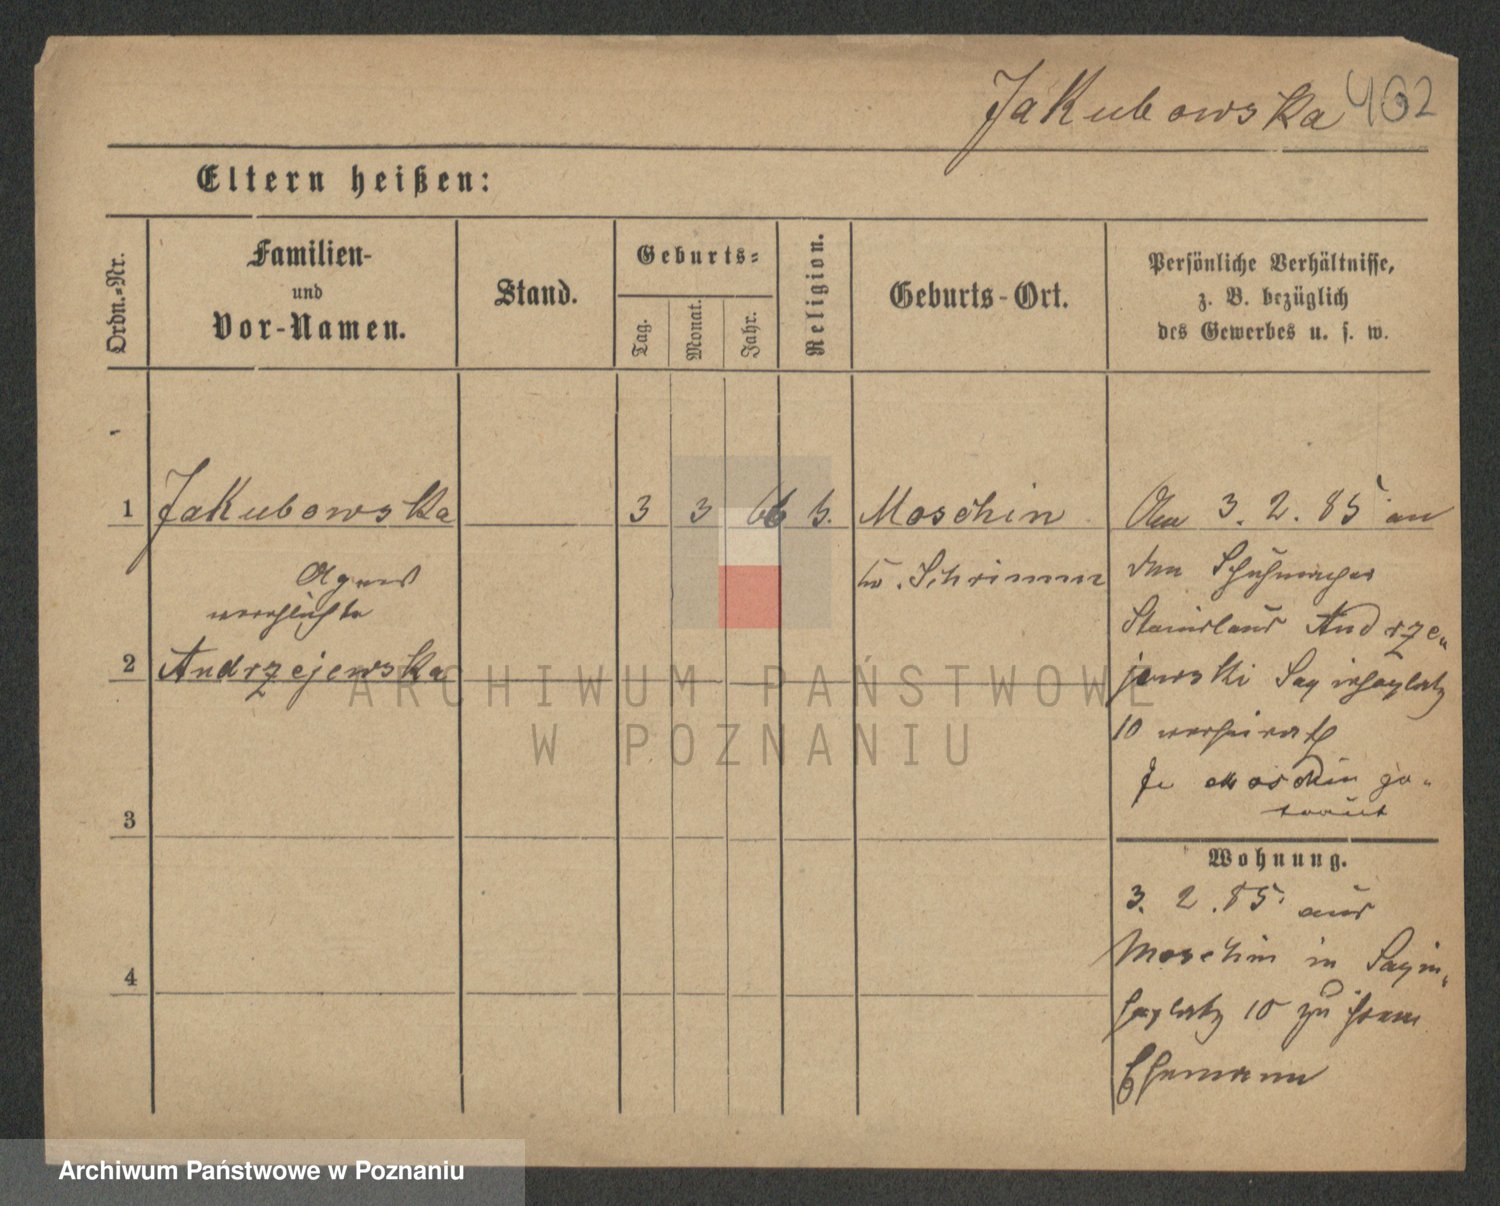 Jakubowska 402
Eltern heißen:
Ordn.-Nr.
Familien-
und
Vor-Namen.
Stand.
Geburts-
Tag.
Monat.
Jahr.
Religion.
Geburts-Ort.
Persönliche Verhältnisse,
z. B. bezüglich
des Gewerbes u. s. w.
1 Jakubowska 3 3 66 k. Moschin Am 3. 2. 85 an
Agnes Kr. Schrimm den Schuhmacher
verehlichte Stanislaus Andrze-
2 Andrzejewska jewski Sapiehaplatz
10 verheirath
In Moschin ge-
traut
3
Wohnung.
3. 2. 85. aus
4 Moschin in Sapie-
haplatz 10 zu ihrem
Ehemann
ARCHIWUM PAŃSTWOWE
W POZNANIU
Archiwum Państwowe w Poznaniu